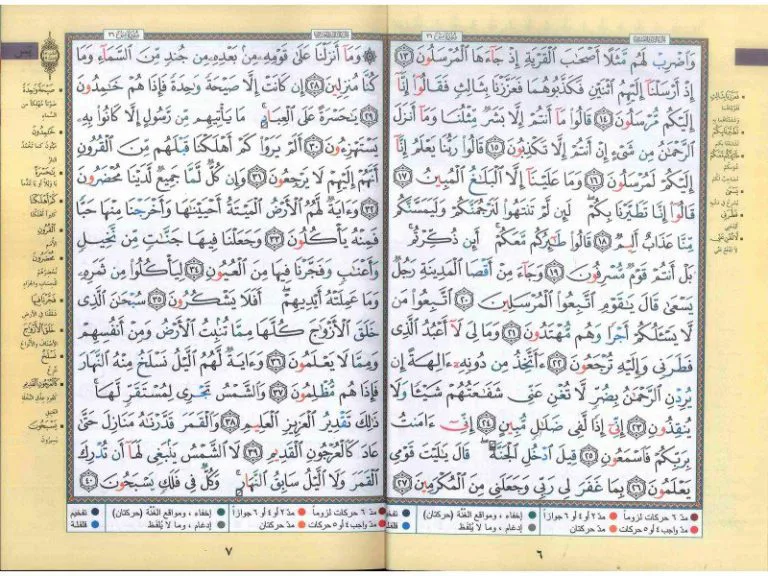 وَٱضْرِبْ لَهُم مَّثَلًا أَصْحَٰبَ ٱلْقَرْيَةِ إِذْ جَآءَهَا ٱلْمُرْسَلُونَ ١٣
إِذْ أَرْسَلْنَآ إِلَيْهِمُ ٱثْنَيْنِ فَكَذَّبُوهُمَا فَعَزَّزْنَا بِثَالِثٍ فَقَالُوٓا۟ إِنَّآ
إِلَيْكُم مُّرْسَلُونَ ١٤ قَالُوا۟ مَآ أَنتُمْ إِلَّا بَشَرٌ مِّثْلُنَا وَمَآ أَنزَلَ
ٱلرَّحْمَٰنُ مِن شَىْءٍ إِنْ أَنتُمْ إِلَّا تَكْذِبُونَ ١٥ قَالُوا۟ رَبُّنَا يَعْلَمُ إِنَّآ
إِلَيْكُمْ لَمُرْسَلُونَ ١٦ وَمَا عَلَيْنَآ إِلَّا ٱلْبَلَٰغُ ٱلْمُبِينُ ١٧
قَالُوٓا۟ إِنَّا تَطَيَّرْنَا بِكُمْ ۖ لَئِن لَّمْ تَنتَهُوا۟ لَنَرْجُمَنَّكُمْ وَلَيَمَسَّنَّكُم
مِّنَّا عَذَابٌ أَلِيمٌ ١٨ قَالُوا۟ طَٰٓئِرُكُم مَّعَكُمْ ۚ أَئِن ذُكِّرْتُم ۚ
بَلْ أَنتُمْ قَوْمٌ مُّسْرِفُونَ ١٩ وَجَآءَ مِنْ أَقْصَا ٱلْمَدِينَةِ رَجُلٌ
يَسْعَىٰ قَالَ يَٰقَوْمِ ٱتَّبِعُوا۟ ٱلْمُرْسَلِينَ ٢٠ ٱتَّبِعُوا۟ مَن
لَّا يَسْـَٔلُكُمْ أَجْرًا وَهُم مُّهْتَدُونَ ٢١ وَمَا لِىَ لَآ أَعْبُدُ ٱلَّذِى
فَطَرَنِى وَإِلَيْهِ تُرْجَعُونَ ٢٢ ءَأَتَّخِذُ مِن دُونِهِۦٓ ءَالِهَةً إِن
يُرِدْنِ ٱلرَّحْمَٰنُ بِضُرٍّ لَّا تُغْنِ عَنِّى شَفَٰعَتُهُمْ شَيْـًٔا وَلَا
يُنقِذُونِ ٢٣ إِنِّىٓ إِذًا لَّفِى ضَلَٰلٍ مُّبِينٍ ٢٤ إِنِّىٓ ءَامَنتُ
بِرَبِّكُمْ فَٱسْمَعُونِ ٢٥ قِيلَ ٱدْخُلِ ٱلْجَنَّةَ ۖ قَالَ يَٰلَيْتَ قَوْمِى
يَعْلَمُونَ ٢٦ بِمَا غَفَرَ لِى رَبِّى وَجَعَلَنِى مِنَ ٱلْمُكْرَمِينَ ٢٧
مدّ ٦ حركات لزوماً مدّ ٢ أو ٤ أو ٦ جوازاً إخفاء، ومواقع الغُنَّة (حركتان)
مدّ واجب ٤ أو ٥ حركات مدّ حركتان إدغام، وما لا يُلفَظ قلقلة
٦
يس
وَمَآ أَنزَلْنَا عَلَىٰ قَوْمِهِۦ مِنۢ بَعْدِهِۦ مِن جُندٍ مِّنَ ٱلسَّمَآءِ وَمَا
كُنَّا مُنزِلِينَ ٢٨ إِن كَانَتْ إِلَّا صَيْحَةً وَٰحِدَةً فَإِذَا هُمْ خَٰمِدُونَ
٢٩ يَٰحَسْرَةً عَلَى ٱلْعِبَادِ ۚ مَا يَأْتِيهِم مِّن رَّسُولٍ إِلَّا كَانُوا۟ بِهِۦ
يَسْتَهْزِءُونَ ٣٠ أَلَمْ يَرَوْا۟ كَمْ أَهْلَكْنَا قَبْلَهُم مِّنَ ٱلْقُرُونِ
أَنَّهُمْ إِلَيْهِمْ لَا يَرْجِعُونَ ٣١ وَإِن كُلٌّ لَّمَّا جَمِيعٌ لَّدَيْنَا مُحْضَرُونَ
٣٢ وَءَايَةٌ لَّهُمُ ٱلْأَرْضُ ٱلْمَيْتَةُ أَحْيَيْنَٰهَا وَأَخْرَجْنَا مِنْهَا حَبًّا
فَمِنْهُ يَأْكُلُونَ ٣٣ وَجَعَلْنَا فِيهَا جَنَّٰتٍ مِّن نَّخِيلٍ
وَأَعْنَٰبٍ وَفَجَّرْنَا فِيهَا مِنَ ٱلْعُيُونِ ٣٤ لِيَأْكُلُوا۟ مِن ثَمَرِهِۦ
وَمَا عَمِلَتْهُ أَيْدِيهِمْ ۖ أَفَلَا يَشْكُرُونَ ٣٥ سُبْحَٰنَ ٱلَّذِى
خَلَقَ ٱلْأَزْوَٰجَ كُلَّهَا مِمَّا تُنۢبِتُ ٱلْأَرْضُ وَمِنْ أَنفُسِهِمْ
وَمِمَّا لَا يَعْلَمُونَ ٣٦ وَءَايَةٌ لَّهُمُ ٱلَّيْلُ نَسْلَخُ مِنْهُ ٱلنَّهَارَ
فَإِذَا هُم مُّظْلِمُونَ ٣٧ وَٱلشَّمْسُ تَجْرِى لِمُسْتَقَرٍّ لَّهَا ۚ
ذَٰلِكَ تَقْدِيرُ ٱلْعَزِيزِ ٱلْعَلِيمِ ٣٨ وَٱلْقَمَرَ قَدَّرْنَٰهُ مَنَازِلَ حَتَّىٰ
عَادَ كَٱلْعُرْجُونِ ٱلْقَدِيمِ ٣٩ لَا ٱلشَّمْسُ يَنۢبَغِى لَهَآ أَن تُدْرِكَ
ٱلْقَمَرَ وَلَا ٱلَّيْلُ سَابِقُ ٱلنَّهَارِ ۚ وَكُلٌّ فِى فَلَكٍ يَسْبَحُونَ ٤٠
صَيْحَةً وَٰحِدَةً
خَٰمِدُونَ
يَٰحَسْرَةً
كَمْ أَهْلَكْنَا
ٱلْقُرُونِ
مُحْضَرُونَ
فَجَّرْنَا فِيهَا
خَلَقَ ٱلْأَزْوَٰجَ
نَسْلَخُ
كَٱلْعُرْجُونِ ٱلْقَدِيمِ
يَسْبَحُونَ
مدّ ٦ حركات لزوماً مدّ ٢ أو ٤ أو ٦ جوازاً إخفاء، ومواقع الغُنَّة (حركتان) تفخيم
مدّ واجب ٤ أو ٥ حركات مدّ حركتان إدغام، وما لا يُلفَظ قلقلة
٧